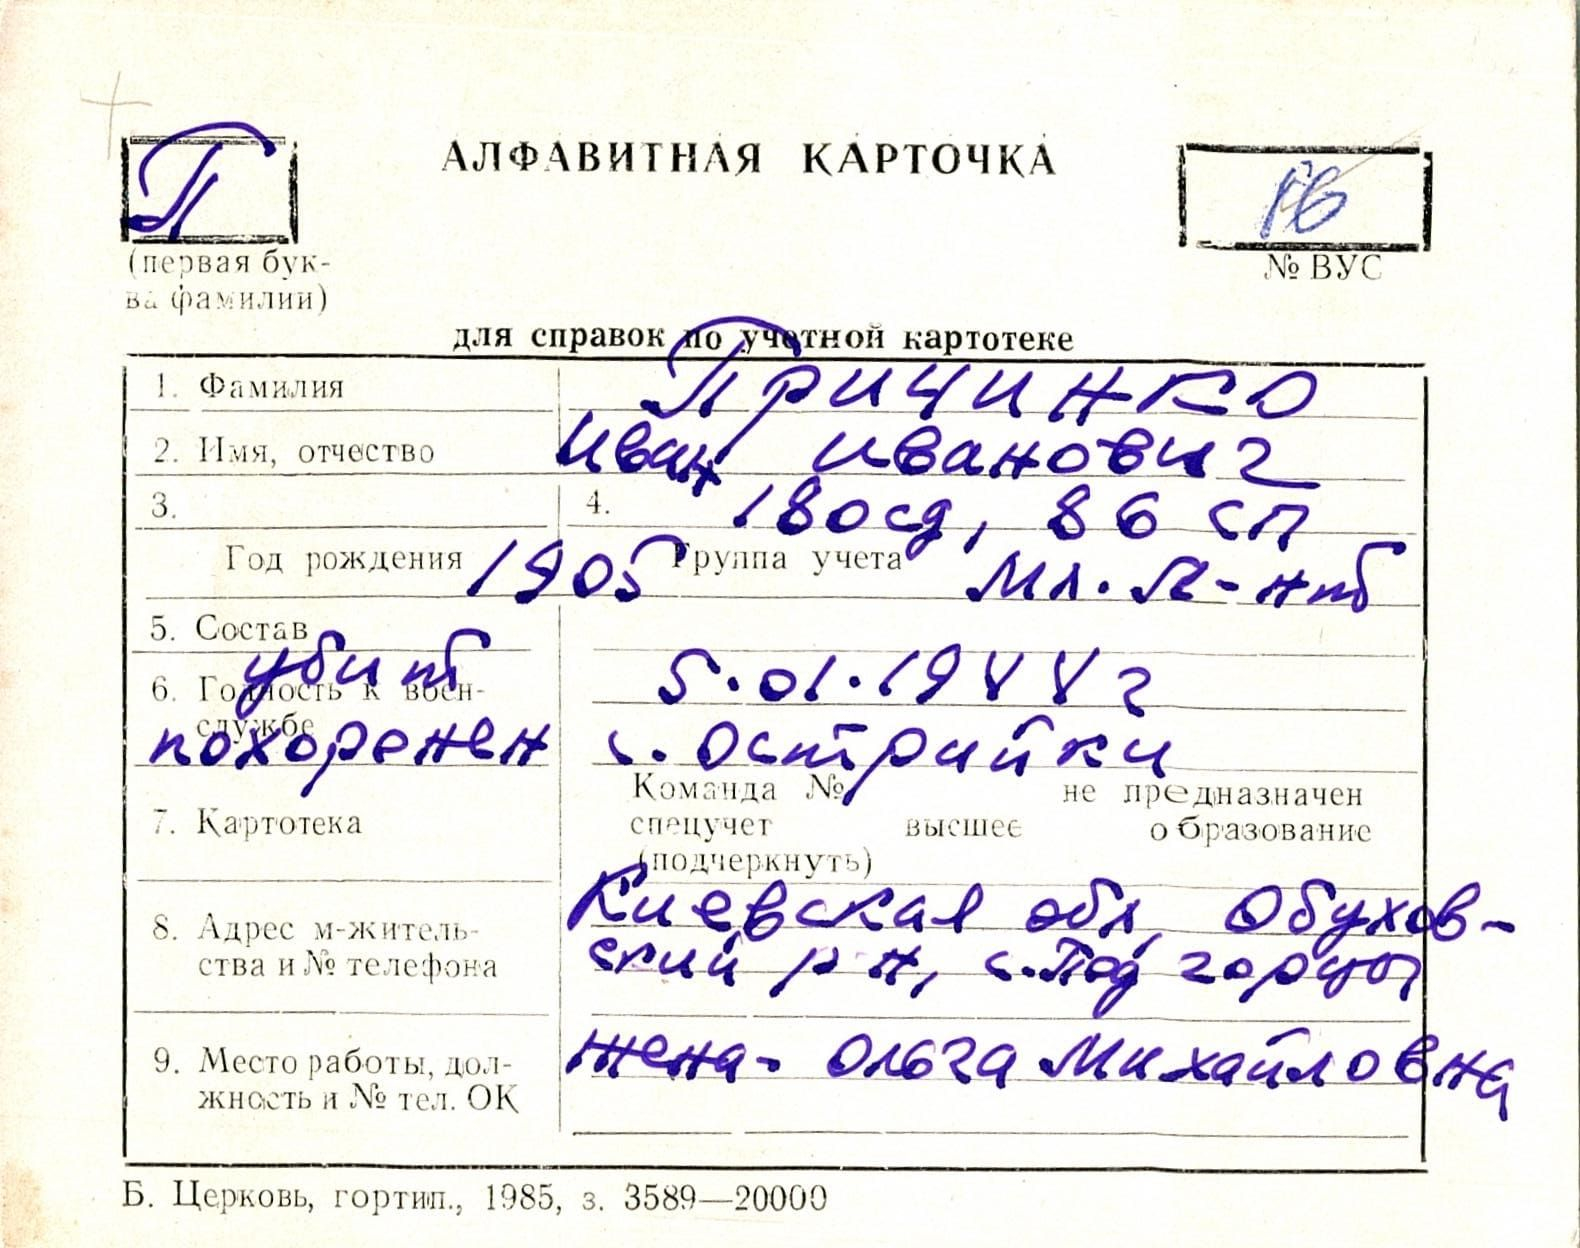 П
АЛФАВИТНАЯ КАРТОЧКА
(первая бук-
ва фамилии)
№ ВУС
для справок по учетной картотеке
1. Фамилия Причинко
2. Имя, отчество Иван Иванович
3. 4. 180 сд, 86 сп
Год рождения 1905 Группа учета Мл. л-нт
5. Состав
убит 5.01.1944 г
6. Годность к воен-
службе
похоронен с. Острийки
Команда № не предназначен
7. Картотека спецучет высшее образование
(подчеркнуть)
8. Адрес м-житель-
ства и № телефона
Киевская обл, Обухов-
ский р н, с. Подгорцы
9. Место работы, дол-
жность и № тел. ОК
жена - Ольга Михайловна
Б. Церковь, гортип., 1985, з. 3589—20000